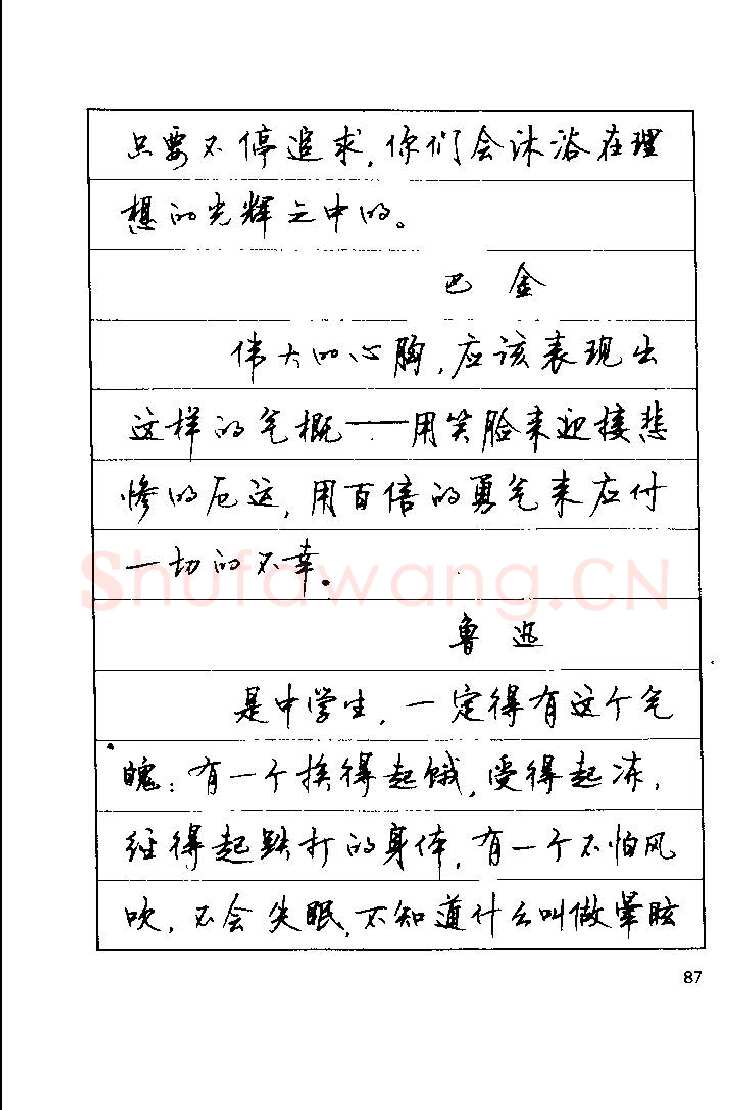 只要不停追求,你们会沐浴在理
想的光辉之中的。
巴金
伟大的心胸,应该表现出
这样的气概——用笑脸来迎接悲
惨的厄运,用百倍的勇气来应付
一切的不幸。
Shufawang.CN
鲁迅
是中学生,一定得有这个气
魄:有一个挨得起饿,受得起冻,
经得起跌打的身体,有一个不怕风
吹,不会失眠,不知道什么叫做晕眩
87